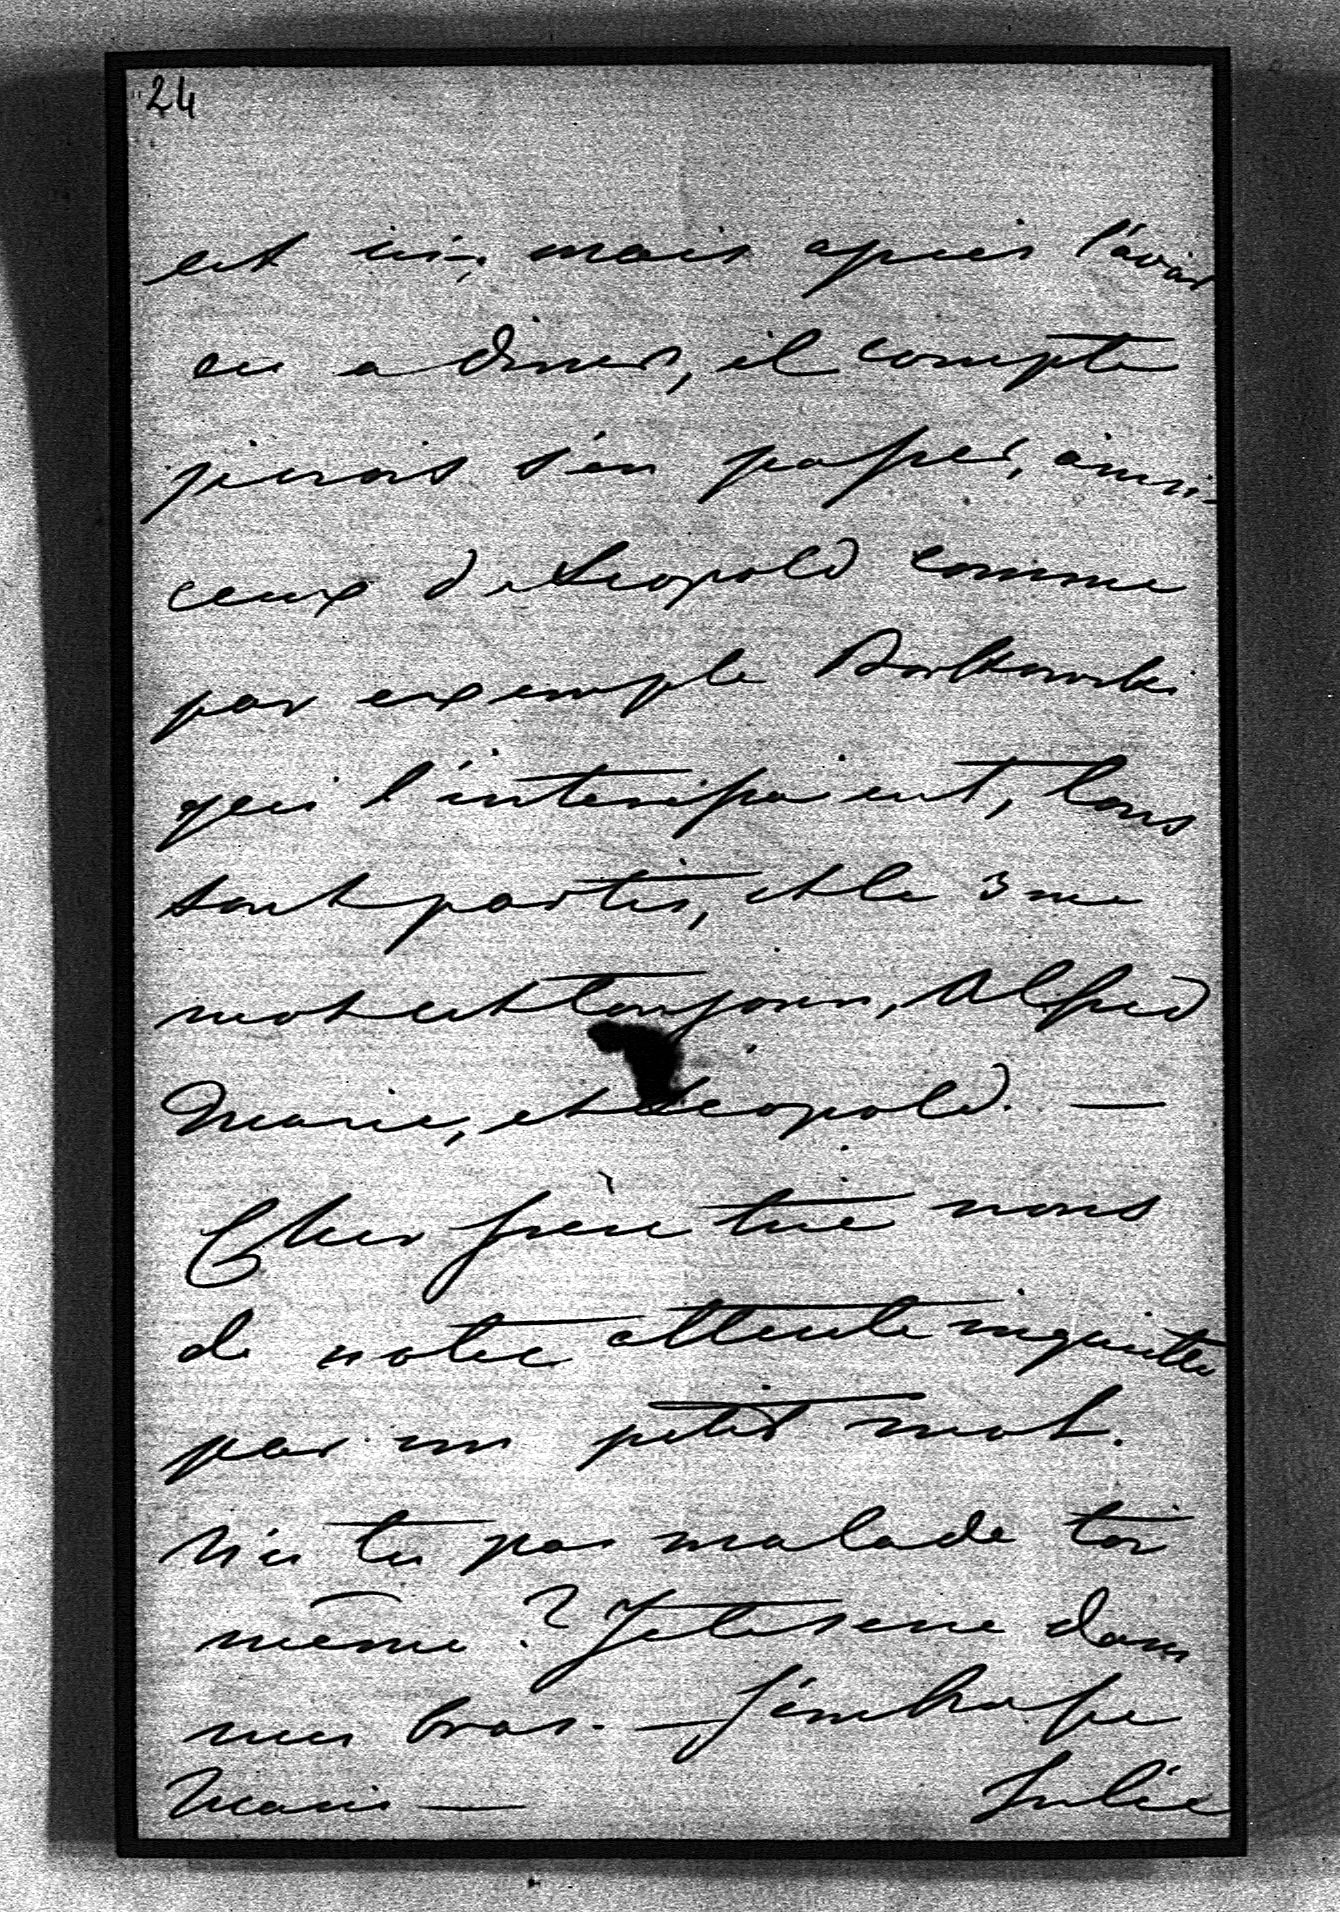 24
est ici, mais après l'avoir
eu a diner, il compte
pouvoir s'en passer, ainsi
ceux de Leopold comme
par exemple Borkowski
qui l'interessaient, tous
sont partis, et le 3 me
mot est toujours, Alfred
Marie, et Leopold. —
Cher frère tire nous
de notre attente inquiette
par un petit mot.
N'es tu pas malade toi
même ? Je te serre dans
mes bras. — J'embrasse
Marie — Julie